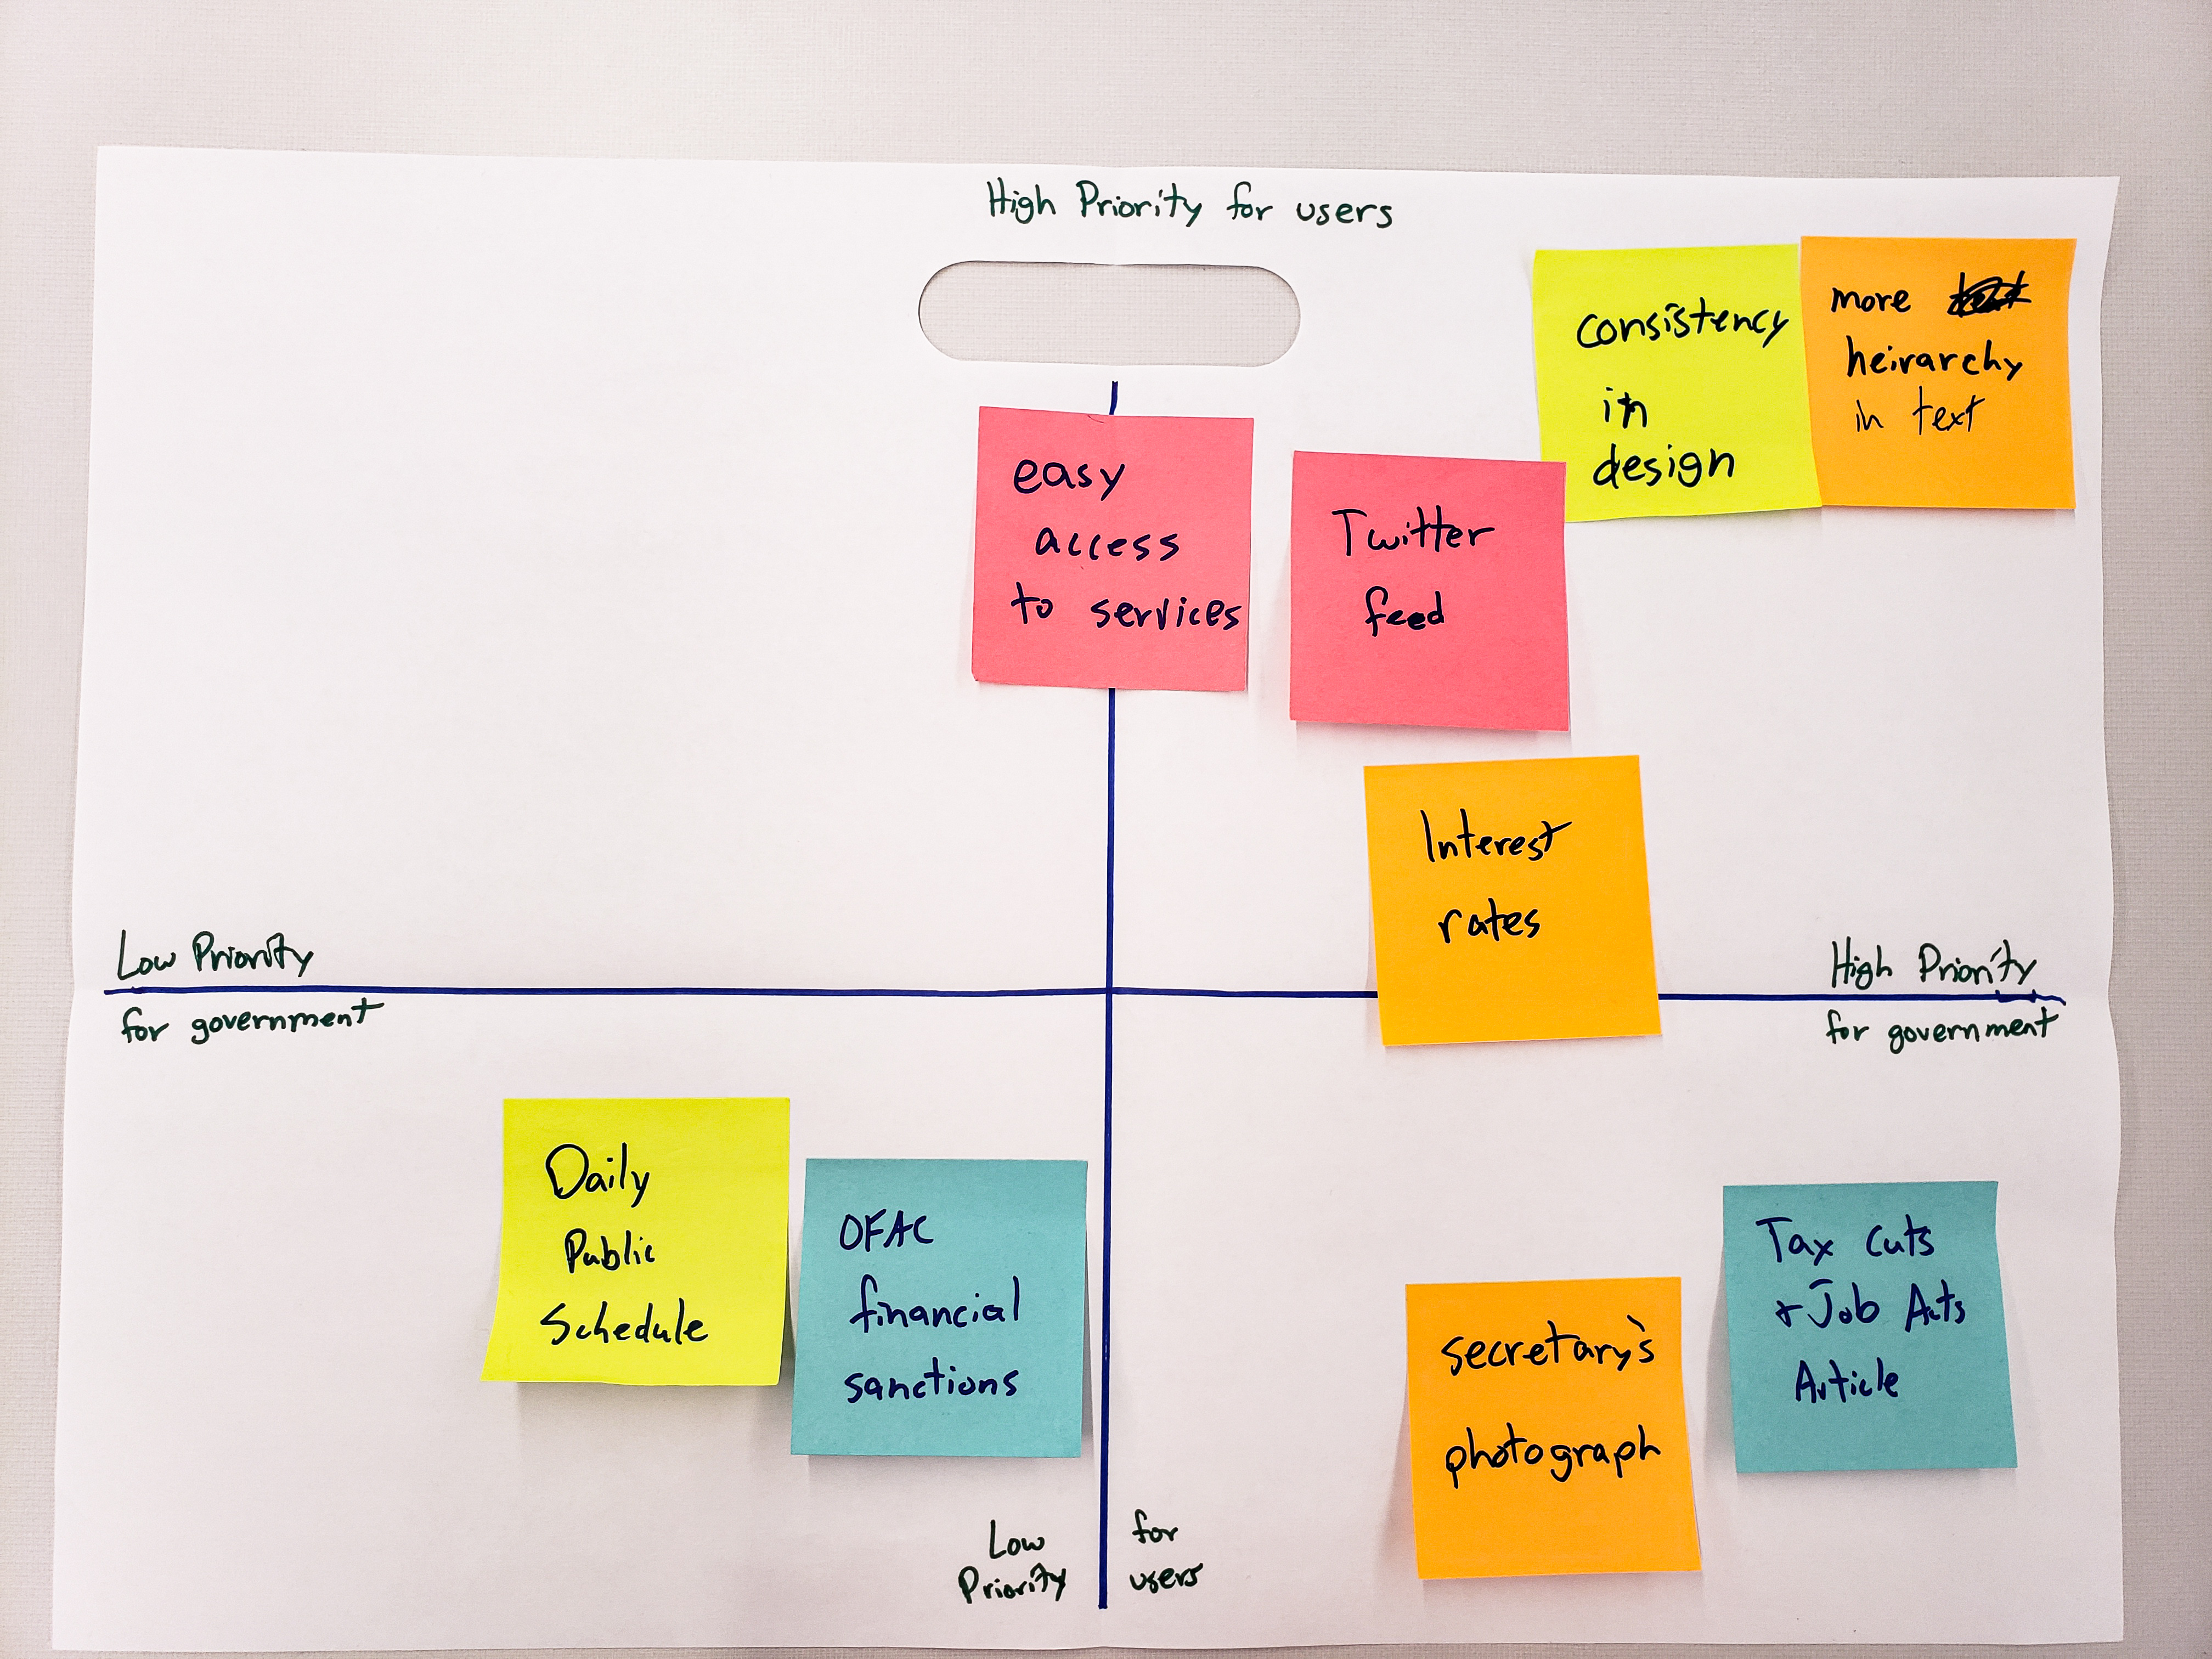 High Priority for users
consistency
in
design
more
heirarchy
in text
easy
access
to services
Twitter
feed
Interest
rates
Low Priority
for government
High Priority
for government
Daily
Public
Schedule
OFAC
financial
sanctions
secretary's
photograph
Tax Cuts
+ Job Acts
Article
Low
Priority
for
users